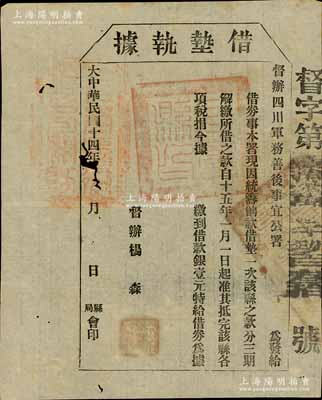 上海陽明拍賣
借墊執據
督辦四川軍務善後事宜公署 為發給
借券事本署現因統籌餉款借墊一次該縣之款分三期
解繳所借之款自十五年一月一日起准其抵完該縣各
項稅捐今據 繳到借款銀壹元特給借券為據
督辦楊森
大中華民國十四年 月 日 縣局會印
督字第 號
上海陽明拍賣